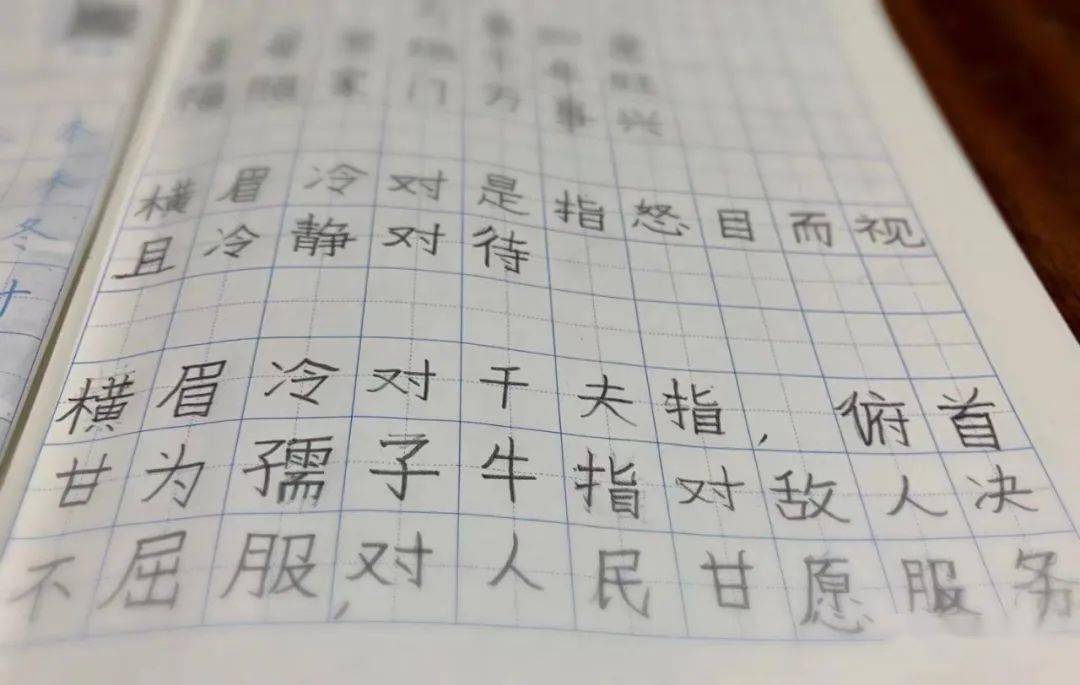 家 门 为 事 兴
横眉冷对是指怒目而视
且冷静对待
横眉冷对千夫指,俯首
甘为孺子牛指对敌人决
不屈服,对人民甘愿服务
冬